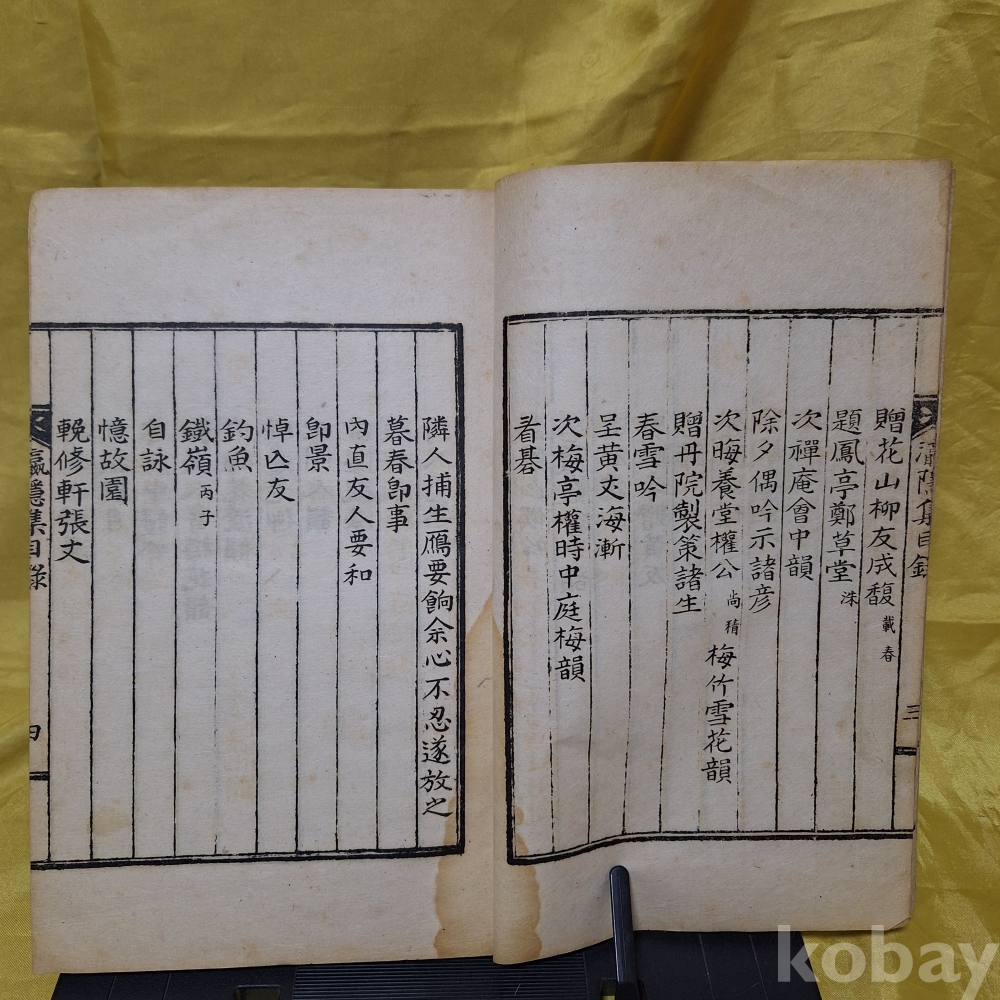 瀛隱集目錄 三
贈花山柳友成馥 載春
題鳳亭鄭草堂 洙
次禪庵會中韻
除夕偶吟示諸彦
次晦養堂權公 尚精 梅竹雪花韻
贈丹院製策諸生
春雪吟
呈黄丈海漸
次梅亭權時中庭梅韻
看碁
隣人捕生鴈要餉余心不忍遂放之
暮春卽事
內直友人要和
卽景
悼亡友
釣魚
鐵嶺 丙子
自詠
憶故園
輓修軒張丈
瀛隱集目錄 四
kobay